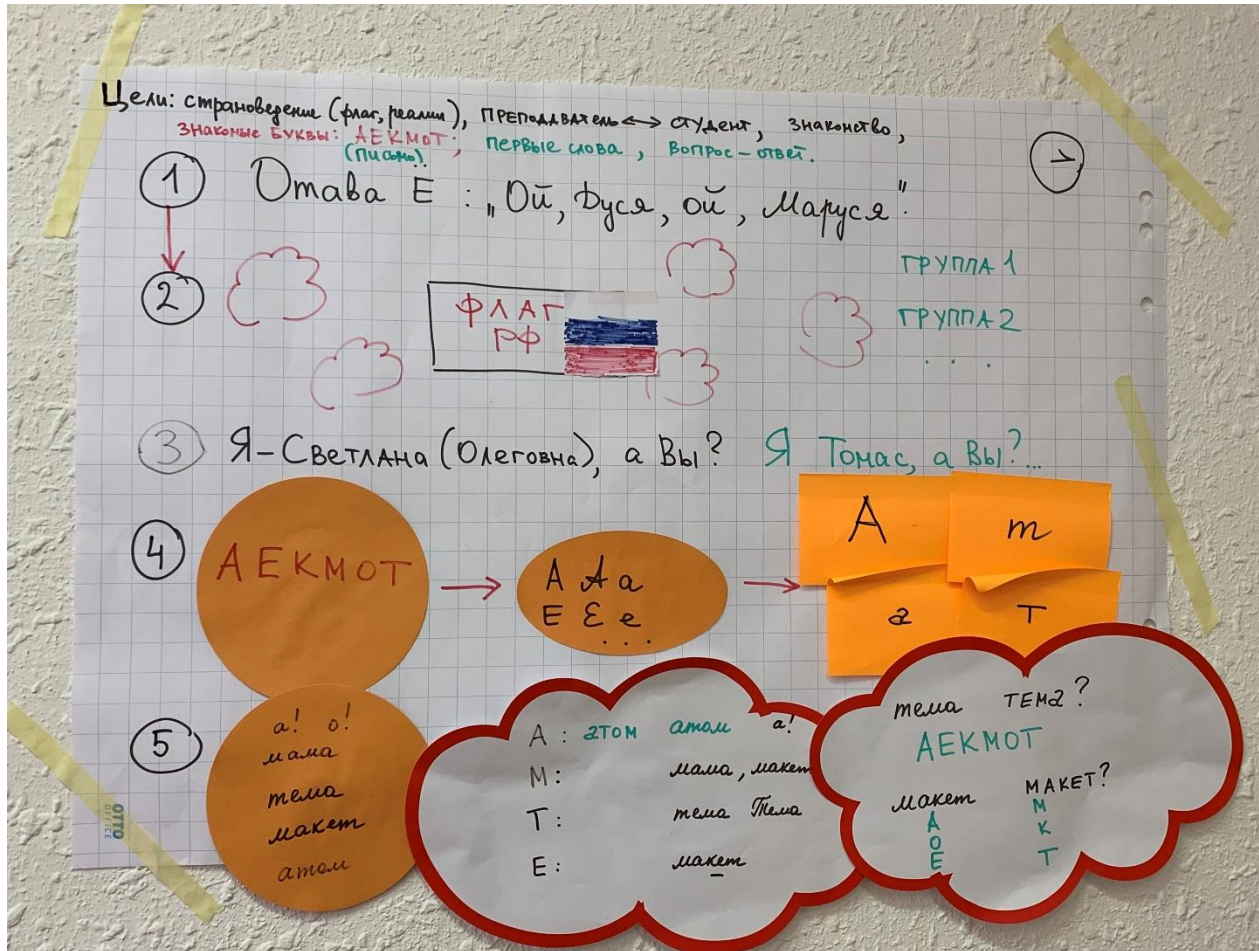 Цели: страноведение (флаг, реалии), преподаватель ↔ студент, знакомство,
знакомые буквы: АЕКМОТ; первые слова, вопрос-ответ.
(письмо)
1 Отава Ё: „Ой, Дуся, ой, Маруся".
2
ФЛАГ
РФ
ГРУППА 1
ГРУППА 2
. . .
3 Я-Светлана (Олеговна), а Вы? Я Томас, а Вы?...
4 АЕКМОТ → А А а
Е Е е
...
→ А т
а Т
5 а! о!
мама
тема
макет
атом
А: атом атом а!
М: мама, макет
Т: тема Тема
Е: макет
тема тема?
АЕКМОТ
макет МАКЕТ?
А М
О К
Е Т
OTTO
OFFICE